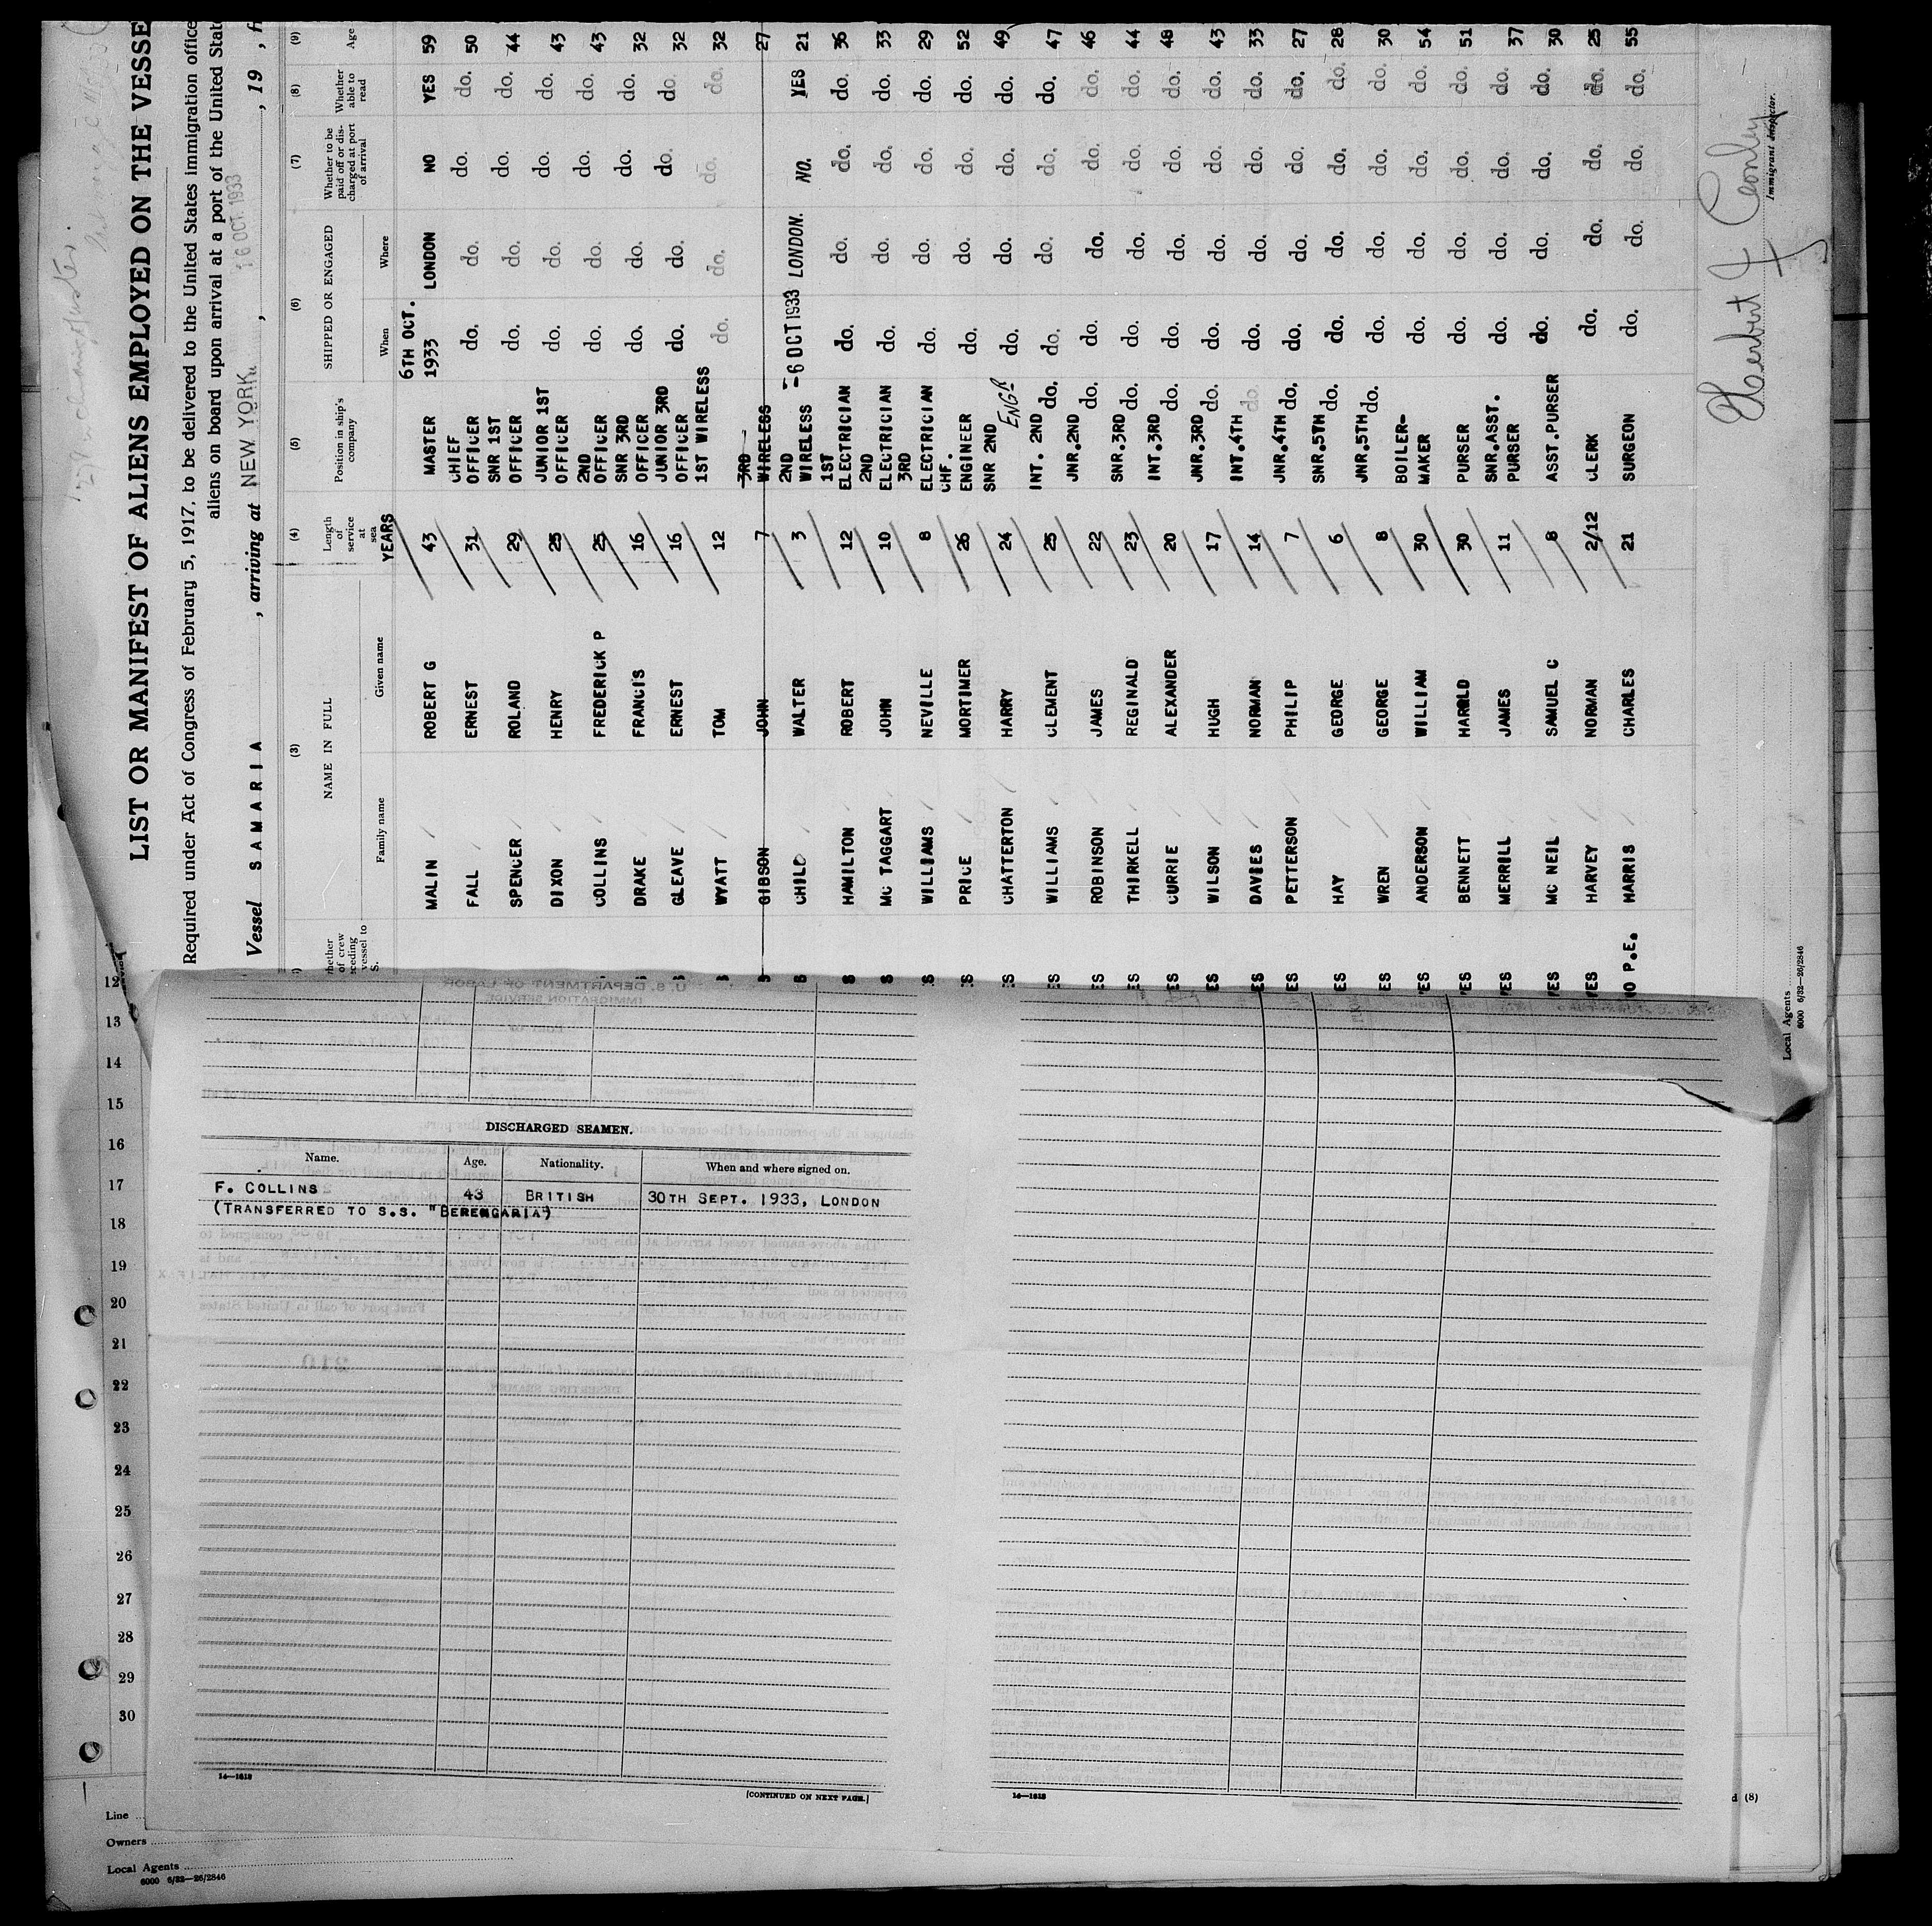 LIST OR MANIFEST OF ALIENS EMPLOYED ON THE VESSE
Required under Act of Congress of February 5, 1917, to be delivered to the United States immigration office
aliens on board upon arrival at a port of the United Stat
Vessel SAMARIA , arriving at NEW YORK. , 16 OCT. 1933 , 19 , f
(3) (4) (5) (6) (7) (8) (9)
NAME IN FULL
Family name Given name
Length of service at sea
YEARS
Position in ship's company
SHIPPED OR ENGAGED
When Where
Whether to be paid off or discharged at port of arrival
Whether able to read
Age
MALIN ROBERT G 43 MASTER 6TH OCT. 1933 LONDON NO YES 59
FALL ERNEST 31 CHIEF OFFICER do. do. do. do. 50
SPENCER ROLAND 29 SNR 1ST OFFICER do. do. do. do. 44
DIXON HENRY 25 JUNIOR 1ST OFFICER do. do. do. do. 43
COLLINS FREDERICK P 25 2ND OFFICER do. do. do. do. 43
DRAKE FRANCIS 16 SNR 3RD OFFICER do. do. do. do. 32
GLEAVE ERNEST 16 JUNIOR 3RD OFFICER do. do. do. do. 32
WYATT TOM 12 1ST WIRELESS do. do. do. do. 32
GIBSON JOHN 7 3RD WIRELESS 27
CHILD WALTER 3 2ND WIRELESS -6 OCT 1933 LONDON. NO. YES 21
HAMILTON ROBERT 12 1ST ELECTRICIAN do. do. do. do. 36
MC TAGGART JOHN 10 2ND ELECTRICIAN do. do. do. do. 33
WILLIAMS NEVILLE 8 3RD ELECTRICIAN do. do. do. do. 29
PRICE MORTIMER 26 CHF. ENGINEER do. do. do. do. 52
CHATTERTON HARRY 24 SNR 2ND ENGR do. do. do. do. 49
WILLIAMS CLEMENT 25 INT. 2ND do. do. do. do. do. 47
ROBINSON JAMES 22 JNR.2ND do. do. do. do. do. 46
THIRKELL REGINALD 23 SNR.3RD do. do. do. do. do. 44
CURRIE ALEXANDER 20 INT.3RD do. do. do. do. do. 48
WILSON HUGH 17 JNR.3RD do. do. do. do. do. 43
DAVIES NORMAN 14 INT.4TH do. do. do. do. do. 33
PETTERSON PHILIP 7 JNR.4TH do. do. do. do. do. 27
HAY GEORGE 6 SNR.5TH do. do. do. do. do. 28
WREN GEORGE 8 JNR.5TH do. do. do. do. do. 30
ANDERSON WILLIAM 30 BOILER-MAKER do. do. do. do. 54
BENNETT HAROLD 30 PURSER do. do. do. do. 51
MERRILL JAMES 11 SNR.ASST. PURSER do. do. do. do. 37
MC NEIL SAMUEL C 8 ASST.PURSER do. do. do. do. 30
HARVEY NORMAN 2/12 CLERK do. do. do. do. 25
NO P.E. HARRIS CHARLES 21 SURGEON do. do. do. do. 55
Herbert F Conley
Immigrant Inspector.
Local Agents
6000 6/32—26/2846
12
13
14
15
16
17
18
19
20
21
22
23
24
25
26
27
28
29
30
DISCHARGED SEAMEN.
Name. Age. Nationality. When and where signed on.
F. COLLINS 43 BRITISH 30TH SEPT. 1933, LONDON
(TRANSFERRED TO S.S. "BERENGARIA")
14—1618
[CONTINUED ON NEXT PAGE.]
14—1618
d (8)
Line
Owners
Local Agents
6000 6/32—26/2846